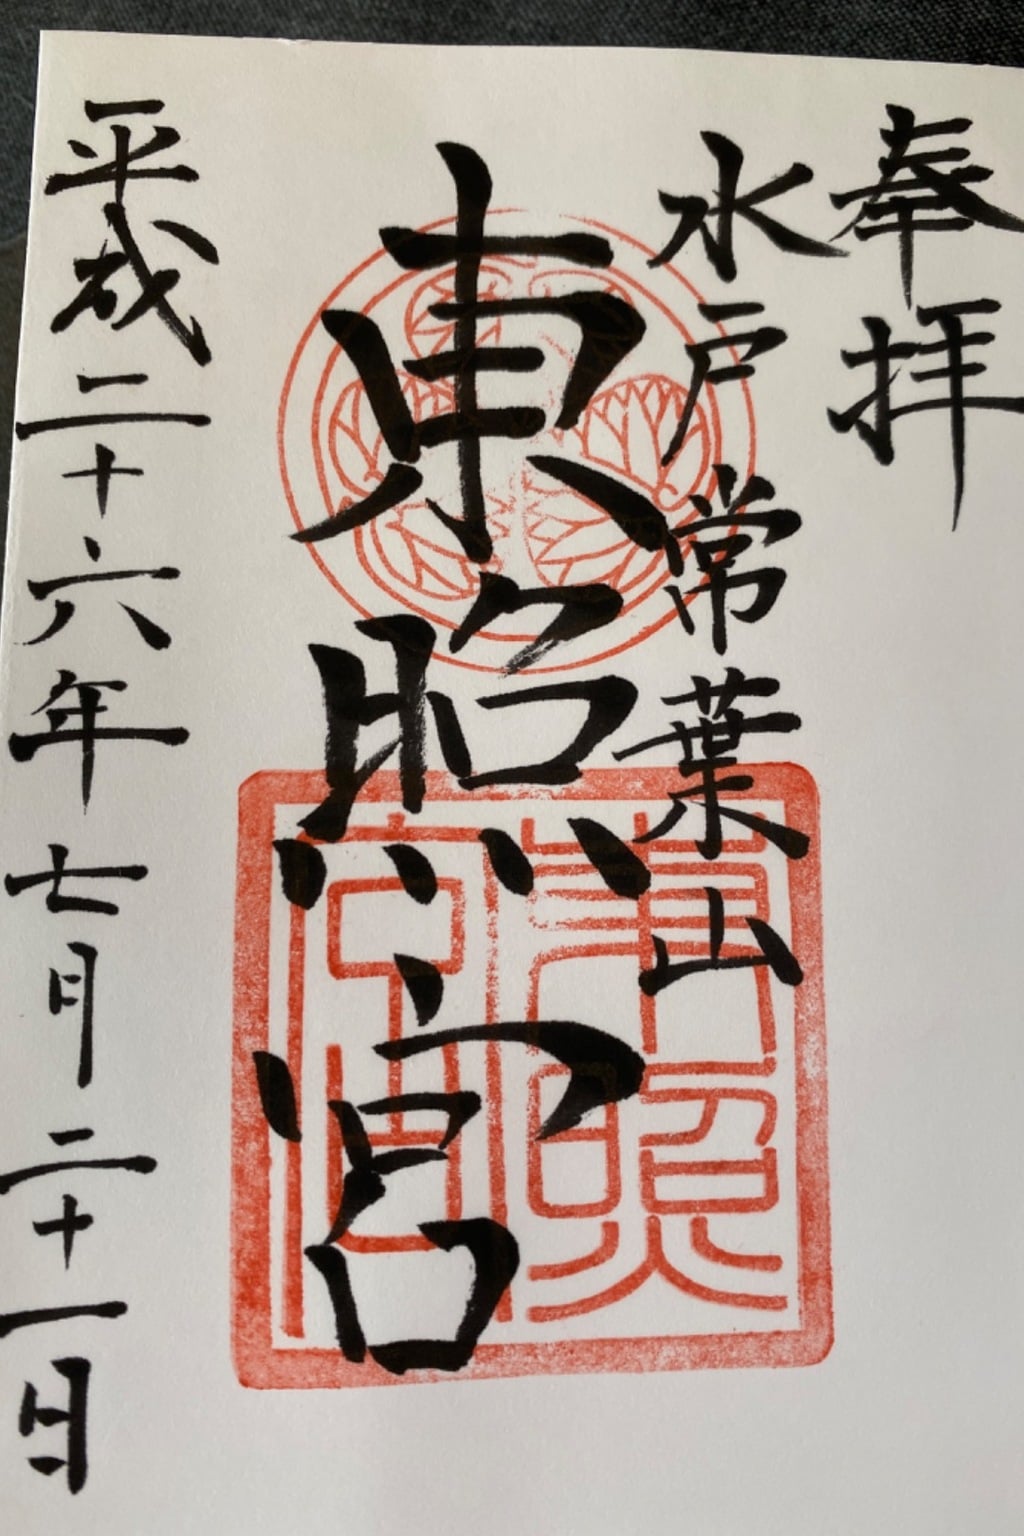 奉拝
水戸常葉山
東照宮
平成二十六年七月二十一日
東照宮